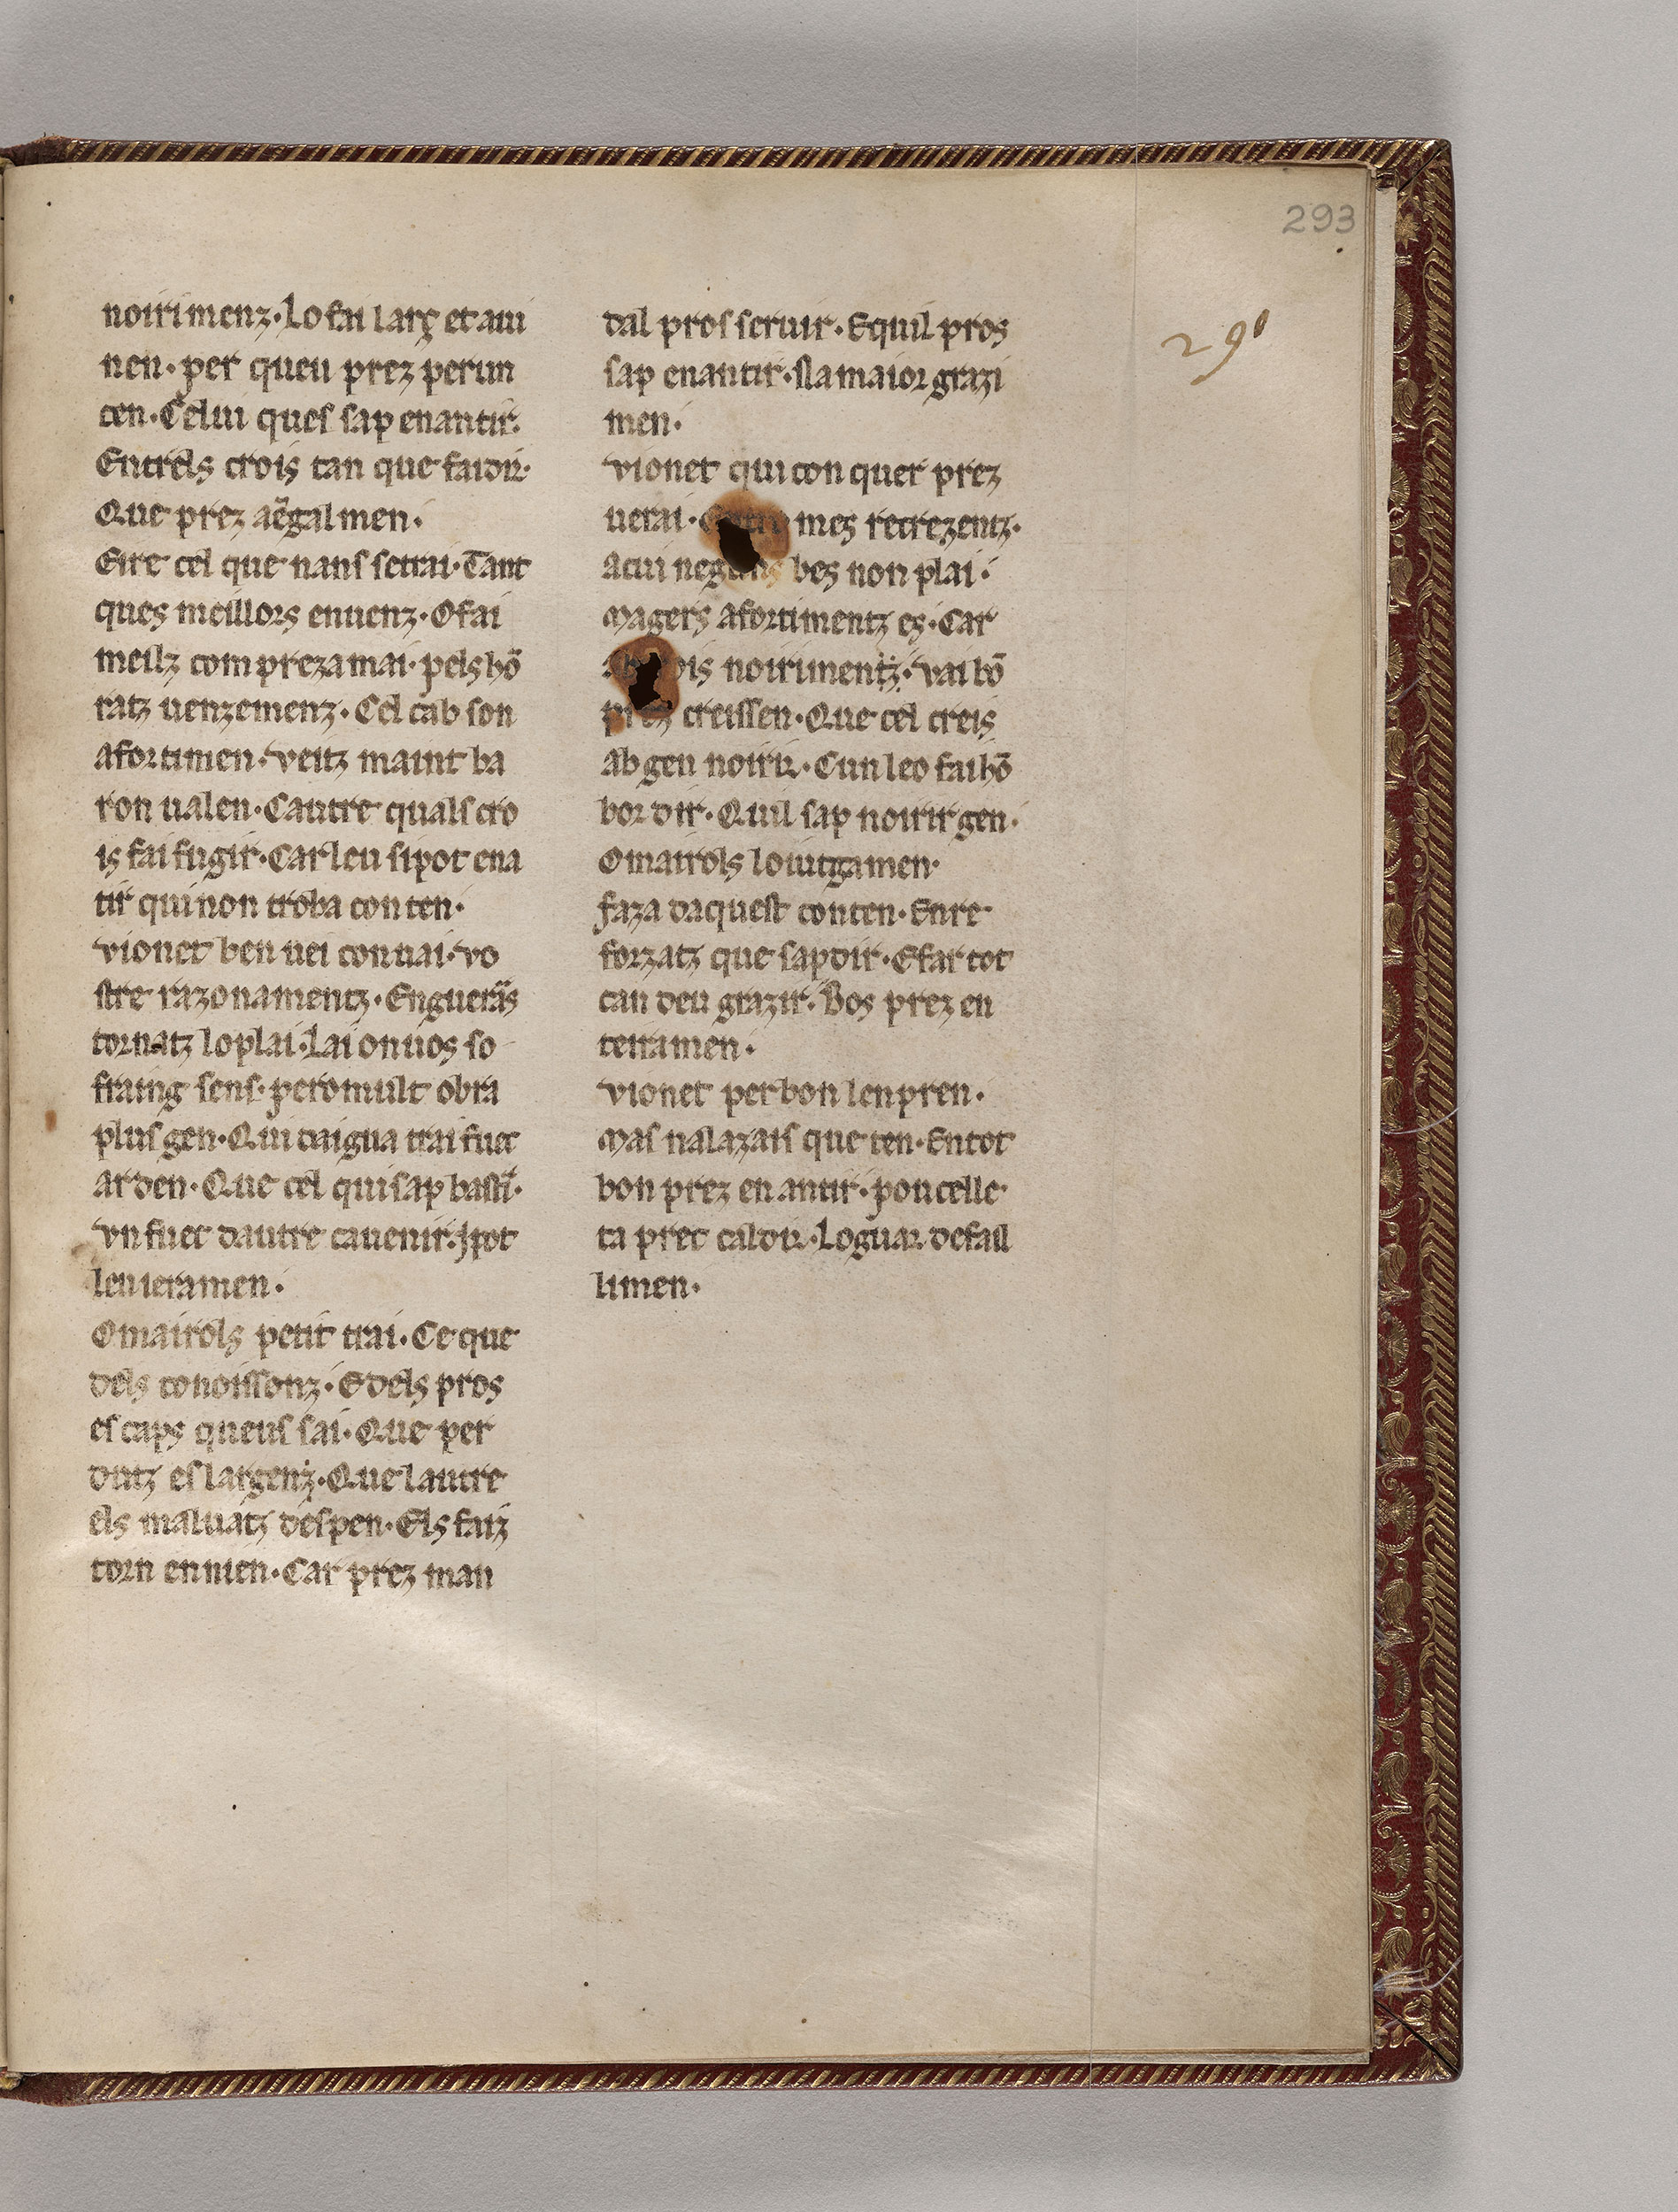 293
291
noirimenz·Lo fai larg et aui
nen·per queu prez perun
cen·Celui ques sap enantir·
Entrels crois tan que faidir·
Que prez aẽgalmen·
Eire cel que nans setrai·Tant
ques meillors enuenz·O fai
meilz com prezamai·pels hõ
ratz uenzemenz·Cel cab son
afortimen·veitz maint ba
ron ualen·Cautre quals cro
is fai fugir·Car leu si pot ena
tir qui non troba conten·
vionet ben uei conuai·vo
stre razonamentz·Engueras
tornatz lo plai·Lai on uos so
fraing sens·pero mult obra
plus gen·Qui daigua trai fuec
arden·Que cel qui sap bastir·
vn fuec dautre cauenir·ipot
leuieramen·
Omairols petit trai·Ce que
dels conoissonz·E dels pros
es caps queus sai·Que per
dutz es largenz·Que lautre
els maluatz despen·Els faiz
torn en nien·Car prez man
dal pros seruir·E quil pros
sap enantir·Na maior grazi
men·
vionet qui con quer prez
uerai· mes retrezentz·
acui bes non plai·
Magers afortimentz es·Car
noirimentz·vai bõ
prez creissen·Que cel creis
ab gen noirir·Cun leo fai hõ
bordir·Quil sap noirir gen·
Omairols lo iutgamen·
faza daquest conten·Enre
forzatz que sap dir·E far tot
can deu grazir·Bos prez en
tetramen·
vionet per bon len pren·
Mas nalazais que ten·En tot
bon prez en antir·poncelle
ta prec caldir·Lo guar defail
limen·